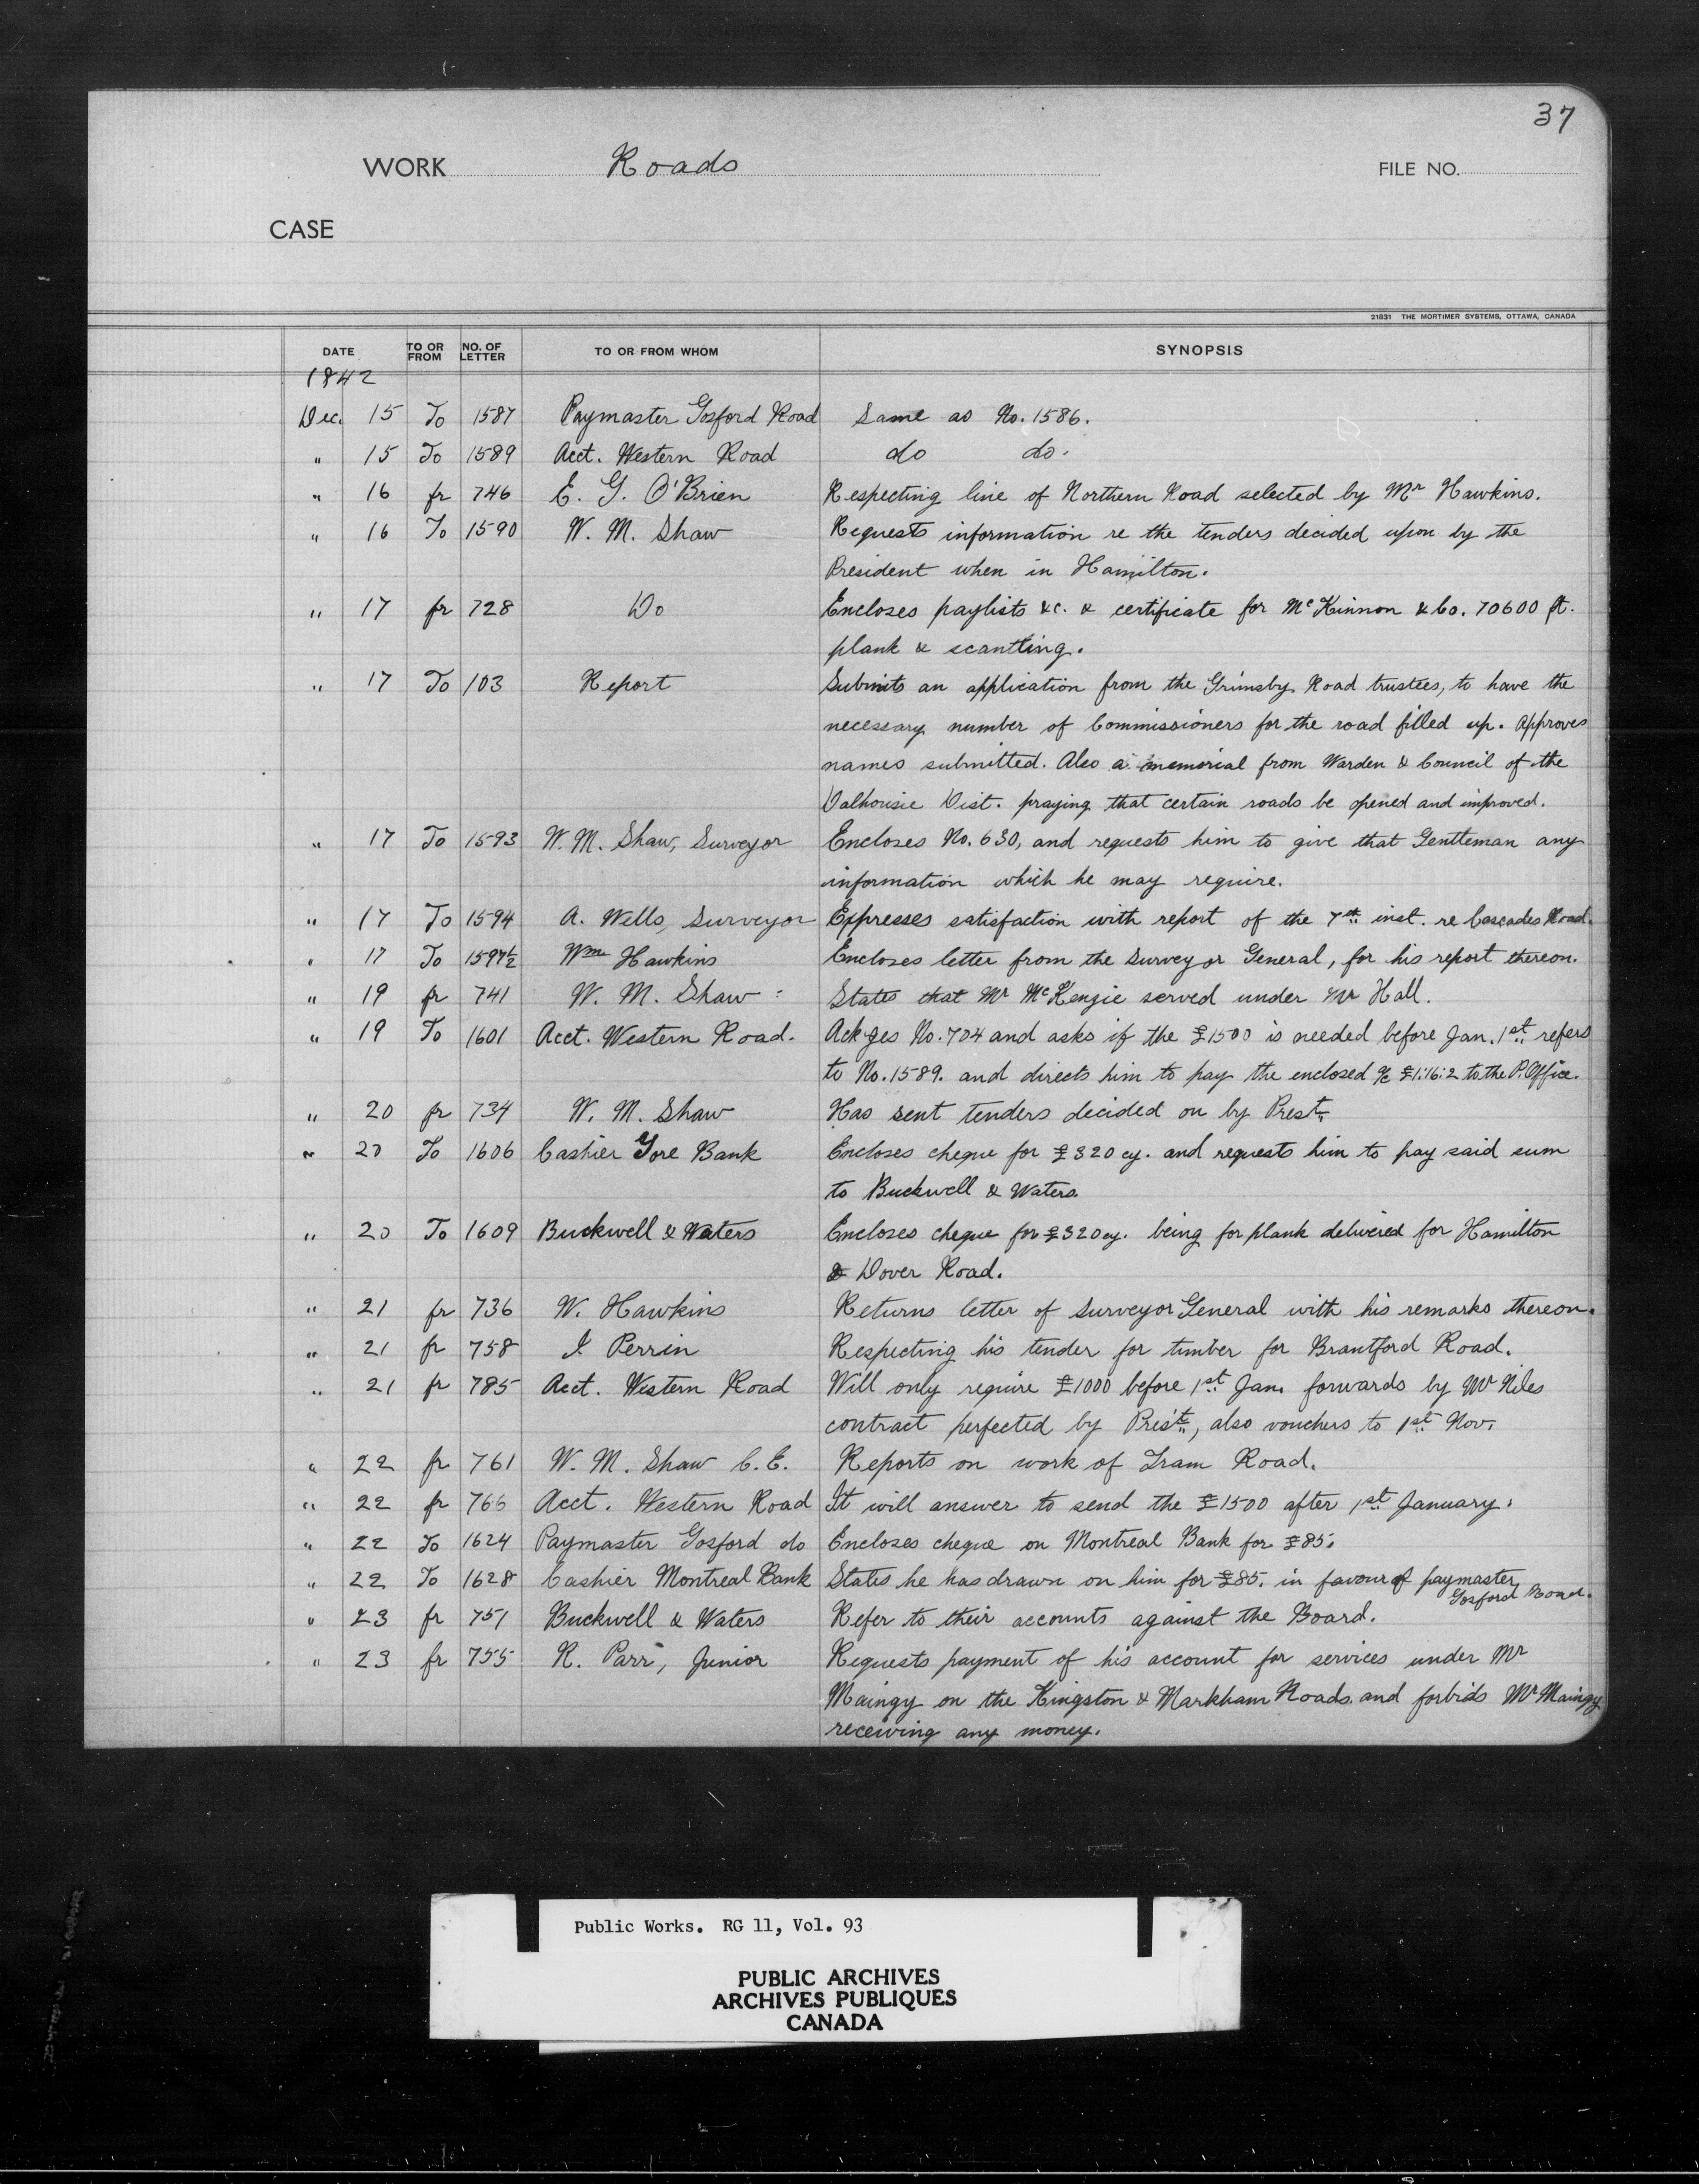 37
WORK Roads FILE NO.
CASE
21831 THE MORTIMER SYSTEMS, OTTAWA, CANADA
DATE TO OR FROM NO. OF LETTER TO OR FROM WHOM SYNOPSIS
1842
Dec. 15 To 1587 Paymaster Gosford Road Same as No. 1586.
" 15 To 1589 Acct. Western Road do do.
" 16 fr 746 E. G. O'Brien Respecting line of Northern Road selected by Mr Hawkins.
" 16 To 1590 W. M. Shaw Requests information re the tenders decided upon by the
President when in Hamilton.
" 17 fr 728 Do Encloses paylists &c. & certificate for McKinnon & Co. 70600 ft.
plank & scantling.
" 17 To 103 Report Submits an application from the Grimsby Road trustees, to have the
necessary number of Commissioners for the road filled up. Approves
names submitted. Also a memorial from Warden & Council of the
Dalhousie Dist. praying that certain roads be opened and improved.
" 17 To 1593 W. M. Shaw, Surveyor Encloses No. 630, and requests him to give that Gentleman any
information which he may require.
" 17 To 1594 A. Wells, Surveyor Expresses satisfaction with report of the 7th inst. re Cascades Road.
" 17 To 1597½ Wm Hawkins Encloses letter from the Surveyor General, for his report thereon.
" 19 fr 741 W. M. Shaw States that Mr McKenzie served under Mr Hall.
" 19 To 1601 Acct. Western Road. Ackges No. 704 and asks if the £1500 is needed before Jan. 1st refers
to No. 1589. and directs him to pay the enclosed a/c £1:16:2 to the P. Office.
" 20 fr 734 W. M. Shaw Has sent tenders decided on by Prest.
" 20 To 1606 Cashier Gore Bank Encloses cheque for £320 cy. and requests him to pay said sum
to Buckwell & Waters.
" 20 To 1609 Buckwell & Waters Encloses cheque for £320 cy. being for plank delivered for Hamilton
& Dover Road.
" 21 fr 736 W. Hawkins Returns letter of Surveyor General with his remarks thereon.
" 21 fr 758 I Perrin Respecting his tender for timber for Brantford Road.
" 21 fr 785 Acct. Western Road Will only require £1000 before 1st Jan. forwards by Mr Niles
contract perfected by Pres't, also vouchers to 1st Nov.
" 22 fr 761 W. M. Shaw C.E. Reports on work of Tram Road.
" 22 fr 766 Acct. Western Road It will answer to send the £1500 after 1st January.
" 22 To 1624 Paymaster Gosford do Encloses cheque on Montreal Bank for £85.
" 22 To 1628 Cashier Montreal Bank States he has drawn on him for £85. in favour of paymaster
Gosford Road.
" 23 fr 751 Buckwell & Waters Refer to their accounts against the Board.
" 23 fr 755 R. Parr, Junior Requests payment of his account for services under Mr
Maingy on the Kingston & Markham Roads. and forbids Mr Maingy
receiving any money.
Public Works. RG 11, Vol. 93
PUBLIC ARCHIVES
ARCHIVES PUBLIQUES
CANADA